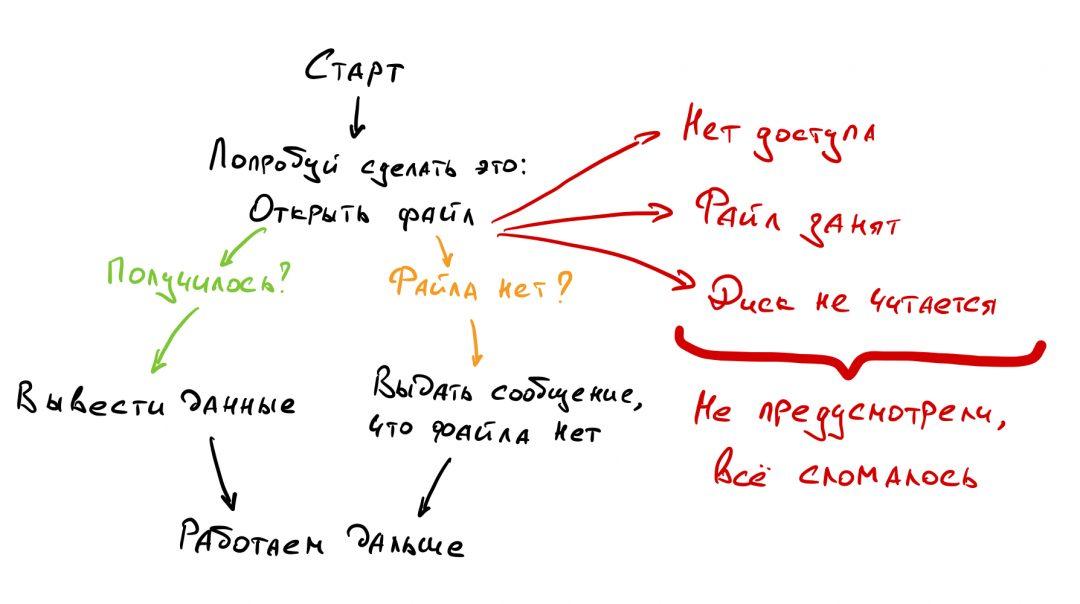 Старт
Попробуй сделать это:
Открыть файл
Получилось?
Файла нет?
Вывести данные
Выдать сообщение,
что файла нет
Работаем дальше
Нет доступа
Файл занят
Диск не читается
Не предусмотрели,
всё сломалось